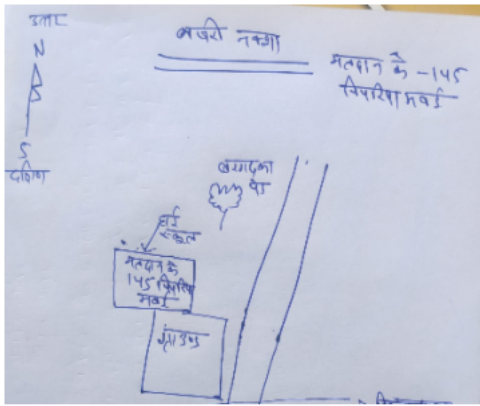 उत्तर
N
S
दक्षिण
नजरी नक्शा
मतदान के -145
पिपरिया मवई
बरगद का
पेड
हाई
स्कूल
मतदान के
145 पिपरिया
मवई
ग्राउण्ड